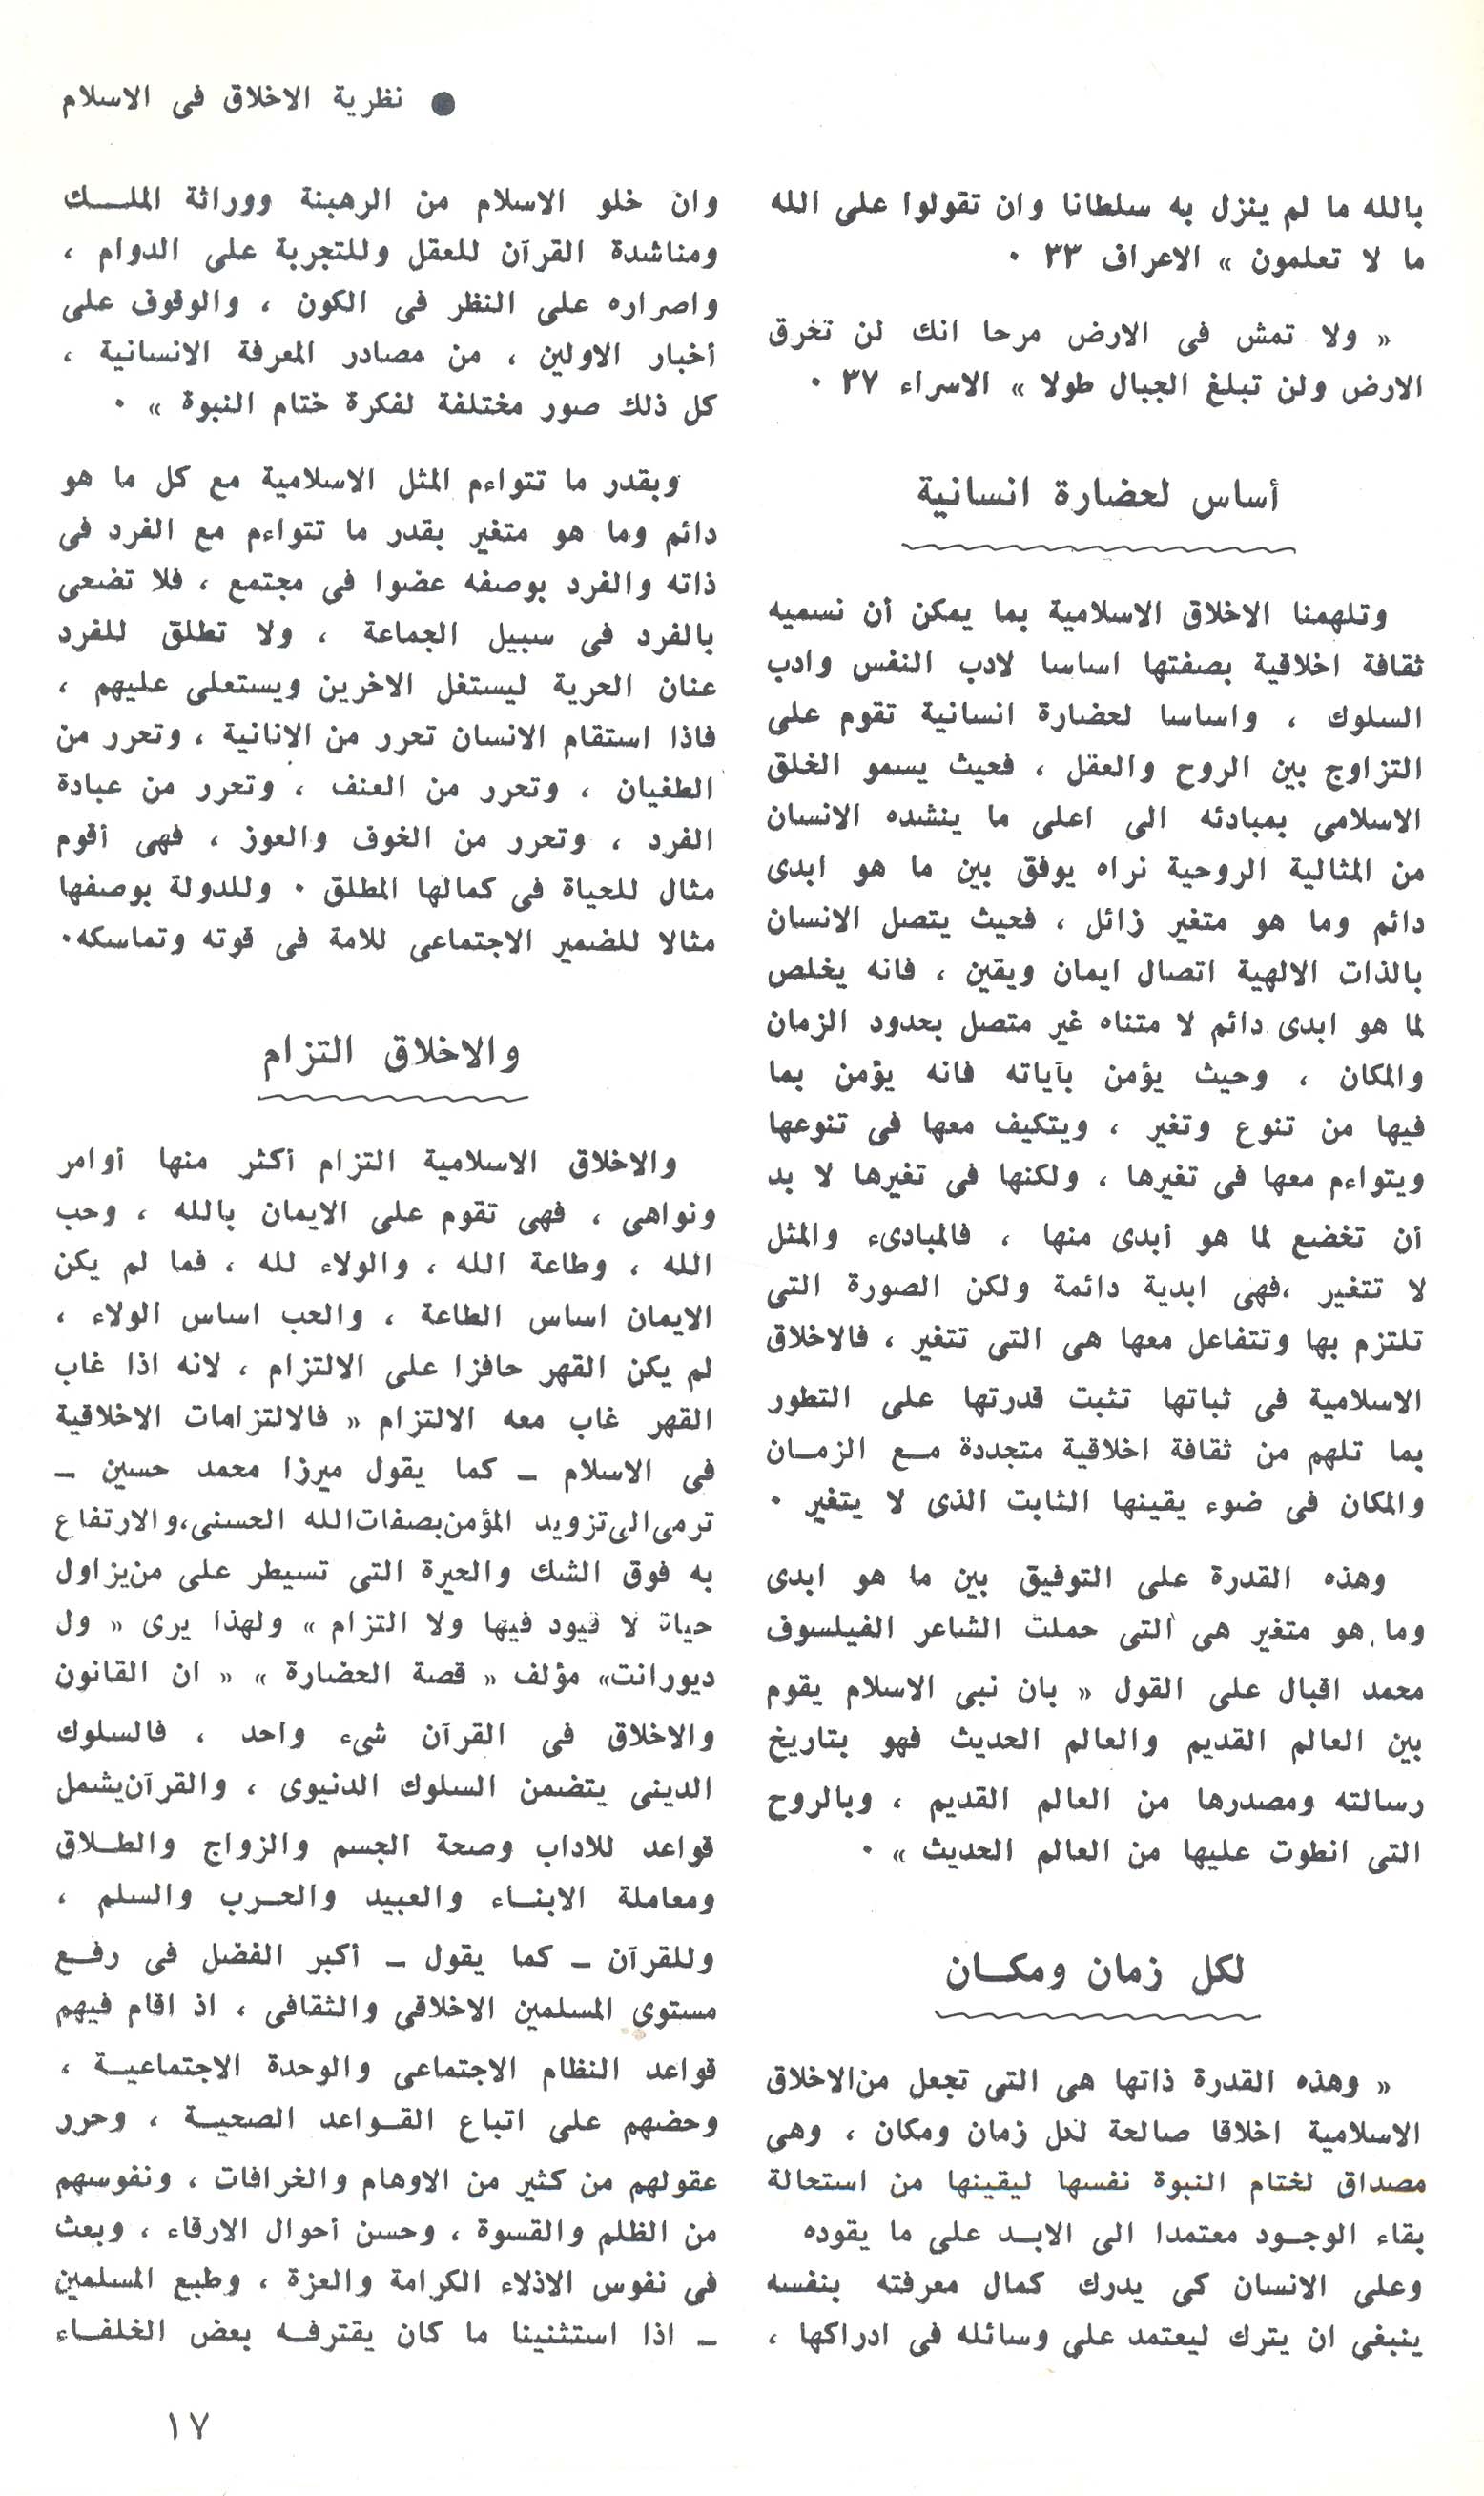 ● نظرية الاخلاق فى الاسلام
بالله ما لم ينزل به سلطانا وان تقولوا على الله
ما لا تعلمون » الاعراف ٣٣ ٠
« ولا تمش فى الارض مرحا انك لن تخرق
الارض ولن تبلغ الجبال طولا » الاسراء ٣٧ ٠
أساس لحضارة انسانية
وتلهمنا الاخلاق الاسلامية بما يمكن أن نسميه
ثقافة اخلاقية بصفتها اساسا لادب النفس وادب
السلوك ، واساسا لحضارة انسانية تقوم على
التزاوج بين الروح والعقل ، فحيث يسمو الخلق
الاسلامى بمبادئه الى اعلى ما ينشده الانسان
من المثالية الروحية نراه يوفق بين ما هو ابدى
دائم وما هو متغير زائل ، فحيث يتصل الانسان
بالذات الالهية اتصال ايمان ويقين ، فانه يخلص
لما هو ابدى دائم لا متناه غير متصل بحدود الزمان
والمكان ، وحيث يؤمن بآياته فانه يؤمن بما
فيها من تنوع وتغير ، ويتكيف معها فى تنوعها
ويتواءم معها فى تغيرها ، ولكنها فى تغيرها لا بد
أن تخضع لما هو أبدى منها ، فالمبادىء والمثل
لا تتغير ،فهى ابدية دائمة ولكن الصورة التى
تلتزم بها وتتفاعل معها هى التى تتغير ، فالاخلاق
الاسلامية فى ثباتها تثبت قدرتها على التطور
بما تلهم من ثقافة اخلاقية متجددة مـع الزمـان
والمكان فى ضوء يقينها الثابت الذى لا يتغير ٠
وهذه القدرة على التوفيق بين ما هو ابدى
وما هو متغير هى التى حملت الشاعر الفيلسوف
محمد اقبال على القول « بان نبى الاسلام يقوم
بين العالم القديم والعالم الحديث فهو بتاريخ
رسالته ومصدرها من العالم القديم ، وبالروح
التى انطوت عليها من العالم الحديث » ٠
لكل زمان ومكـان
« وهذه القدرة ذاتها هى التى تجعل من الاخلاق
الاسلامية اخلاقا صالحة لكل زمان ومكان ، وهى
مصداق لختام النبوة نفسها ليقينها من استحالة
بقاء الوجـود معتمدا الى الابـد على ما يقوده
وعلى الانسان كى يدرك كمال معرفته بنفسه
ينبغى ان يترك ليعتمد على وسائله فى ادراكها ،
وان خلو الاسلام من الرهبنة ووراثة الملـك
ومناشدة القرآن للعقل وللتجربة على الدوام ،
واصراره على النظر فى الكون ، والوقوف على
أخبار الاولين ، من مصادر المعرفة الانسانية ،
كل ذلك صور مختلفة لفكرة ختام النبوة » ٠
وبقدر ما تتواءم المثل الاسلامية مع كل ما هو
دائم وما هو متغير بقدر ما تتواءم مع الفرد فى
ذاته والفرد بوصفه عضوا فى مجتمع ، فلا تضحى
بالفرد فى سبيل الجماعة ، ولا تطلق للفرد
عنان الحرية ليستغل الاخرين ويستعلى عليهم ،
فاذا استقام الانسان تحرر من الانانية ، وتحرر من
الطغيان ، وتحرر من العنف ، وتحرر من عبادة
الفرد ، وتحرر من الخوف والعوز ، فهى أقوم
مثال للحياة فى كمالها المطلق ٠ وللدولة بوصفها
مثالا للضمير الاجتماعى للامة فى قوته وتماسكه٠
والاخلاق التزام
والاخلاق الاسلامية التزام أكثر منها أوامر
ونواهى ، فهى تقوم على الايمان بالله ، وحب
الله ، وطاعة الله ، والولاء لله ، فما لم يكن
الايمان اساس الطاعة ، والحب اساس الولاء ،
لم يكن القهر حافزا على الالتزام ، لانه اذا غاب
القهر غاب معه الالتزام « فالالتزامات الاخلاقية
فى الاسلام ـ كما يقول ميرزا محمد حسين ـ
ترمى الى تزويد المؤمن بصفات الله الحسنى، والارتفاع
به فوق الشك والحيرة التى تسيطر على من يزاول
حياة لا قيود فيها ولا التزام » ولهذا يرى « ول
ديورانت» مؤلف « قصة الحضارة » « ان القانون
والاخلاق فى القرآن شىء واحد ، فالسلوك
الدينى يتضمن السلوك الدنيوى ، والقرآن يشمل
قواعد للاداب وصحة الجسم والزواج والطـلاق
ومعاملة الابنـاء والعبيد والحـرب والسلم ،
وللقرآن ـ كما يقول ـ أكبر الفضل فى رفـع
مستوى المسلمين الاخلاقى والثقافى ، اذ اقام فيهم
قواعد النظام الاجتماعى والوحدة الاجتماعيـة ،
وحضهم على اتباع القـواعد الصحيـة ، وحرر
عقولهم من كثير من الاوهام والخرافات ، ونفوسهم
من الظلم والقسوة ، وحسن أحوال الارقاء ، وبعث
فى نفوس الاذلاء الكرامة والعزة ، وطبع المسلمين
ـ اذا استثنينا ما كان يقترفـه بعض الخلفـاء
١٧